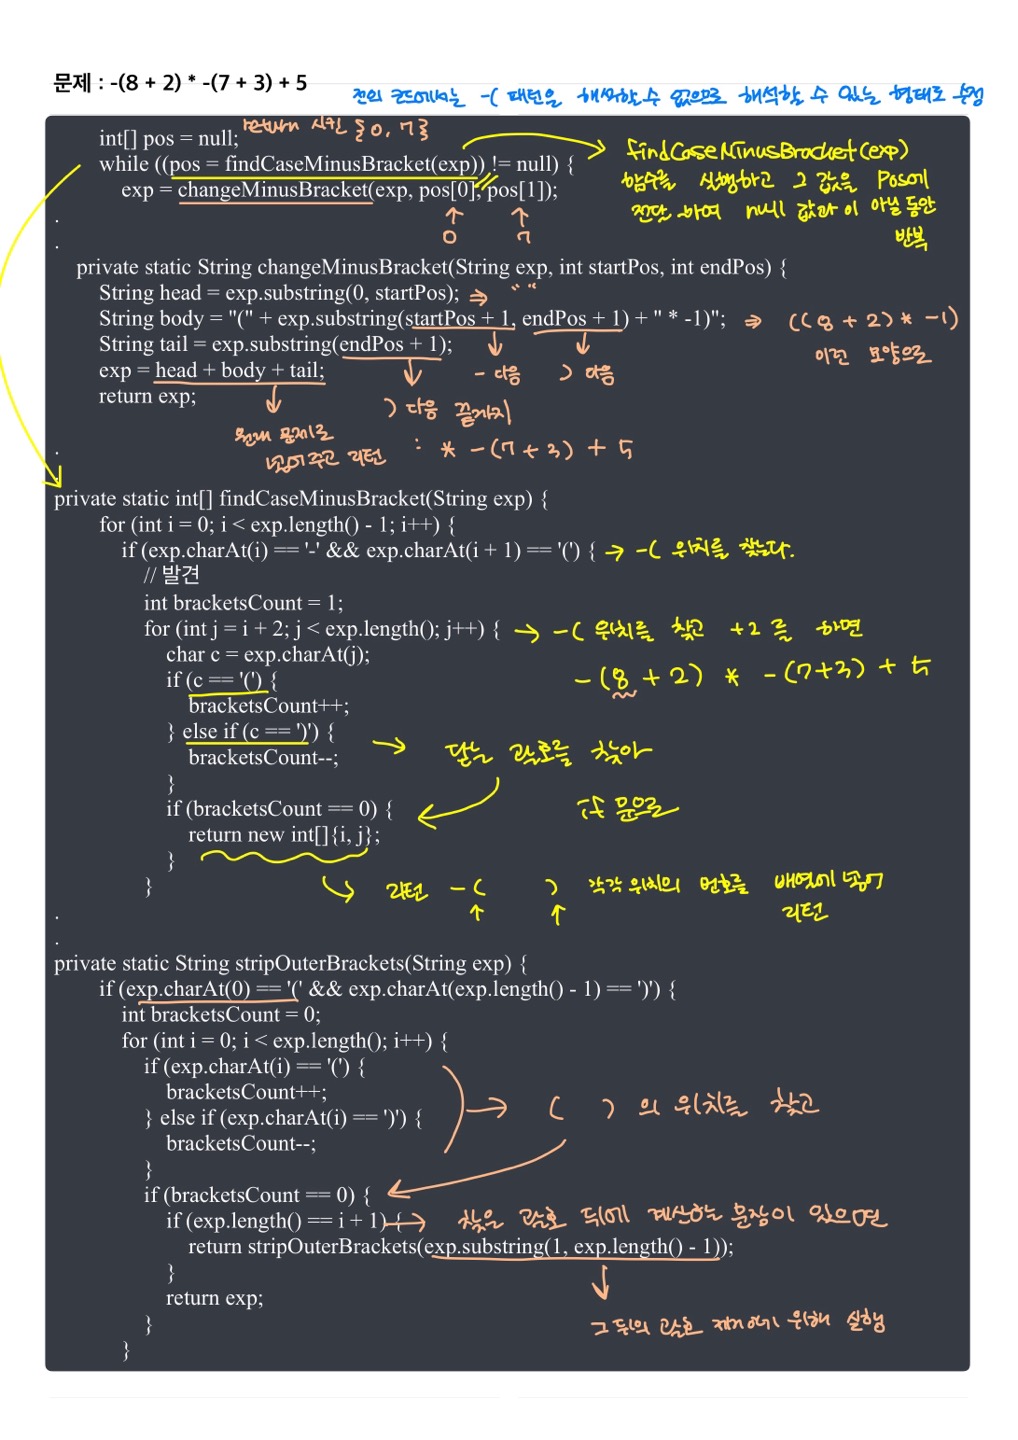 문제 : -(8 + 2) * -(7 + 3) + 5
전의 코드에서는 -( 패턴을 해석할 수 없으므로 해석할 수 있는 형태로 수정
int[] pos = null; return 시킨 {0, 7}
while ((pos = findCaseMinusBracket(exp)) != null) {
exp = changeMinusBracket(exp, pos[0], pos[1]);
0 7
findCaseMinusBracket(exp)
함수를 실행하고 그 값을 Pos에
전달 하여 null 값과 이 아닐 동안
반복
.
.
private static String changeMinusBracket(String exp, int startPos, int endPos) {
String head = exp.substring(0, startPos); ⇒ " "
String body = "(" + exp.substring(startPos + 1, endPos + 1) + " * -1)"; ⇒ ((8 + 2) * -1)
이런 모양으로
String tail = exp.substring(endPos + 1);
- 다음 ) 다음
exp = head + body + tail;
return exp;
) 다음 끝까지
: * -(7 + 3) + 5
원래 문제로
넣어주고 리턴
.
.
private static int[] findCaseMinusBracket(String exp) {
for (int i = 0; i < exp.length() - 1; i++) {
if (exp.charAt(i) == '-' && exp.charAt(i + 1) == '(') { → -( 위치를 찾는다.
// 발견
int bracketsCount = 1;
for (int j = i + 2; j < exp.length(); j++) { → -( 위치를 찾고 +2 를 하면
char c = exp.charAt(j);
-(8 + 2) * -(7+3) + 5
if (c == '(') {
bracketsCount++;
} else if (c == ')') { → 닫는 괄호를 찾아
bracketsCount--;
}
if (bracketsCount == 0) { if 문으로
return new int[]{i, j};
}
→ 리턴 -( ) 각각 위치의 번호를 배열에 넣어
리턴
}
.
.
private static String stripOuterBrackets(String exp) {
if (exp.charAt(0) == '(' && exp.charAt(exp.length() - 1) == ')') {
int bracketsCount = 0;
for (int i = 0; i < exp.length(); i++) {
if (exp.charAt(i) == '(') {
bracketsCount++;
} else if (exp.charAt(i) == ')') { → ( ) 의 위치를 찾고
bracketsCount--;
}
if (bracketsCount == 0) {
if (exp.length() == i + 1) { → 찾은 괄호 뒤에 계산하는 문장이 있으면
return stripOuterBrackets(exp.substring(1, exp.length() - 1));
}
return exp;
그 뒤의 괄호 제거하기 위해 실행
}
}